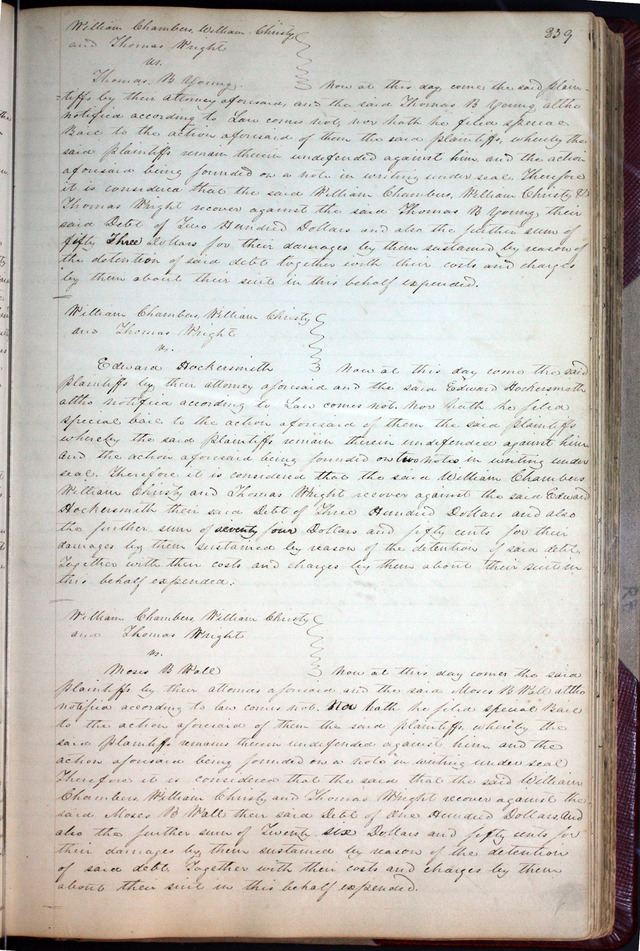 339
William Chambers, William Christy
and Thomas Wright
vs.
Thomas. B Young. Now at this day come the said plain-
-tiffs by their attorney aforesaid, and the said Thomas B Young, altho
notified according to Law comes not, nor hath he filed special
Bail to the action aforesaid of them the said plaintiffs, whereby the
said plaintiffs remain therein undefended against him, and the action
aforesaid being founded on a note in writing under seal. Therefore
it is considered that the said William Chambers, William Christy &
Thomas Wright recover against the said Thomas B Young, their
said Debt of Two Hundred Dollars and also the further sum of
fifty Three Dollars for their damages by them sustained by reason of
the detention of said debt together with their costs and charges
by them about their suit in this behalf expended.
William Chambers, William Christy
and Thomas Wright
vs.
Edward Hockersmith Now at this day come the said
plaintiffs by, their attorney aforesaid and the said Edward Hockersmith
altho notified according to Law comes not. Nor hath he filed
special bail to the action aforesaid of them the said plaintiffs
whereby the said plaintiffs remain therein undefended against him
and the action aforesaid being founded on two notes in writing under
seal. Therefore it is considered that the said William Chambers
William Christy and Thomas Wright recover against the said Edward
Hockersmith their said Debt of Three Hundred Dollars and also
the further sum of seventy four Dollars and fifty cents for their
damages by them sustained by reason of the detention of said debt,
Together with their costs and charges by them about their suit in
this behalf expended.
William Chambers William Christy
and Thomas Wright
vs.
Moses B Wall Now at this day comes the said
plaintiffs by their attornes aforesaid and the said Moses B Wall altho
notified according to law comes not. Nor hath he filed special Bail
to the action aforesaid of them the said plaintiffs whereby the
said plaintiffs remains therein undefended against him and the
action aforesaid being founded on a note in writing under seal
Therefore it is considered that the said that the said William
Chambers, William Christy and Thomas Wright recover against the
said Moses B Wall their said Debt of One Hundred Dollars. And
also the further sum of Twenty six Dollars and fifty cents for
their damages by them sustained by reason of the detention
of said debt Together with their costs and charges by them
about their suit in this behalf expended.